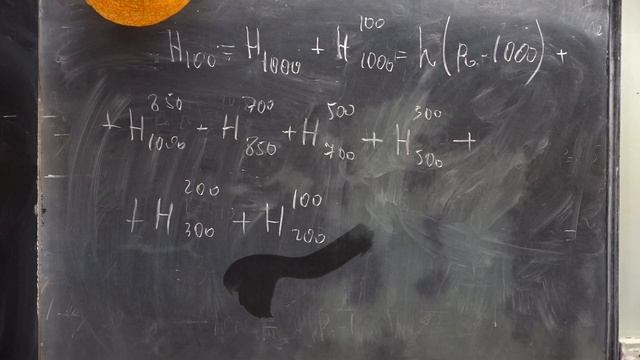 H₁₀₀ = H₁₀₀₀ + H₁₀₀₀¹⁰⁰ = h(p₀ - 1000) +
+ H₁₀₀₀⁸⁵⁰ + H₈₅₀⁷⁰⁰ + H₇₀₀⁵⁰⁰ + H₅₀₀³⁰⁰ +
+ H₃₀₀²⁰⁰ + H₂₀₀¹⁰⁰